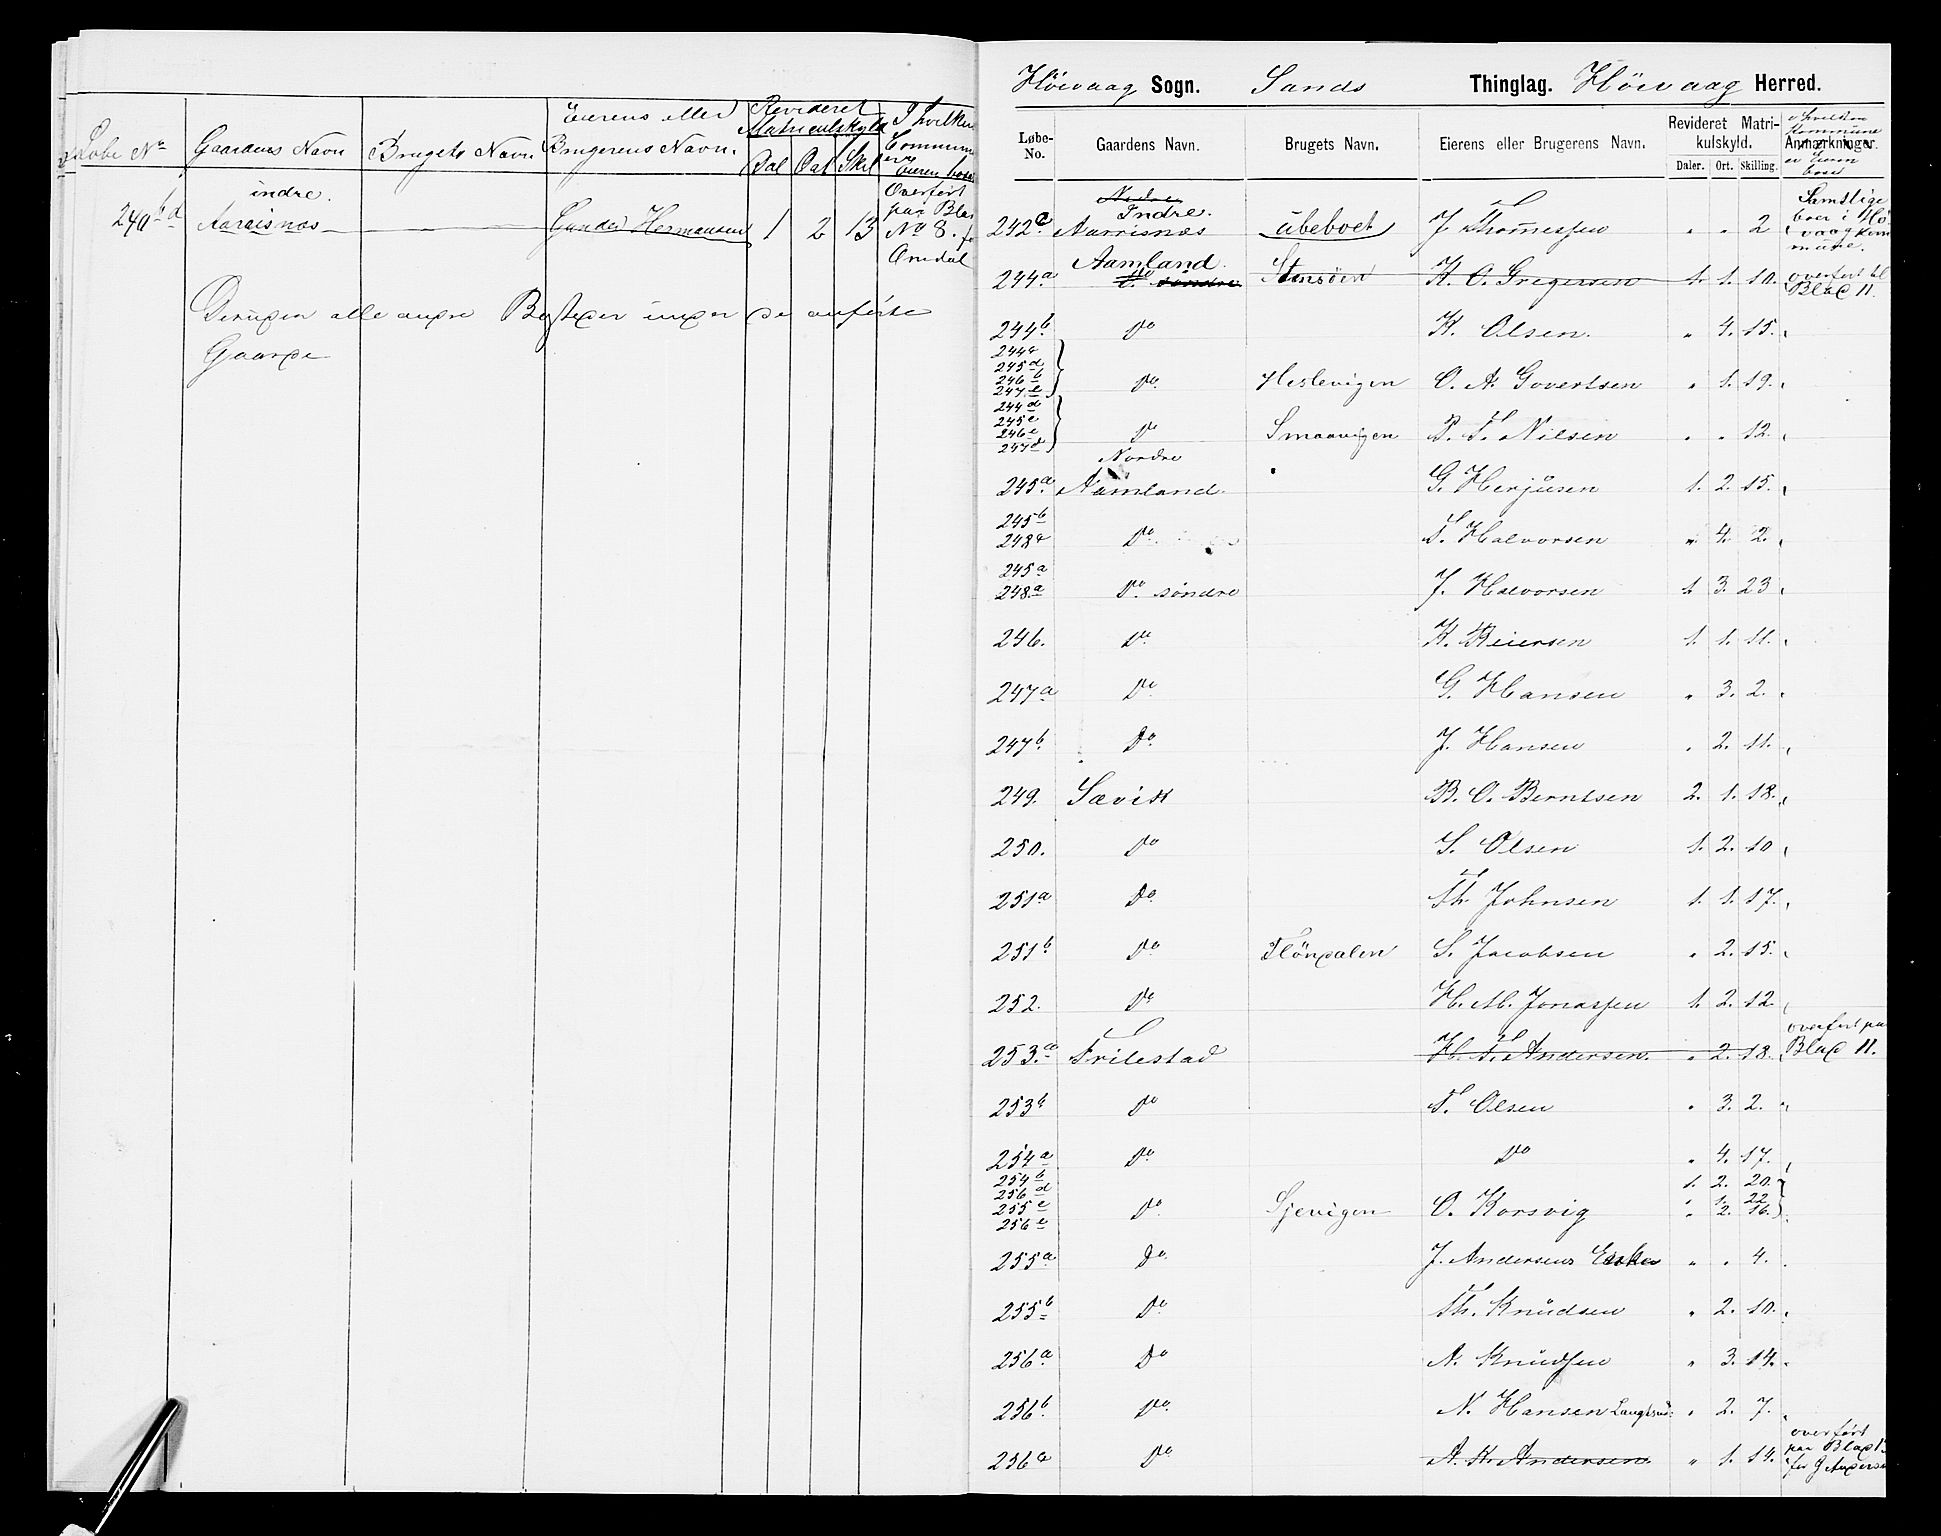 Løbe No Gaardens Navn Brugets Navn Eierens eller Brugerens Navn. Revideret Matriculskyld Dal Ort Skil I hvilken Commune
eieren boer
indre.
240 b d Aarisnæs Gunder Hermansen 1 2 13 Overført paa Blad No 8. for Omdal
Desuden alle andre Bosteder under de anførte
Gaarde
Høivaag Sogn. Sands Thinglag. Høivaag Herred.
Løbe-No. Gaardens Navn. Brugets Navn. Eierens eller Brugerens Navn. Revideret Matrikulskyld. Daler. Ort. Skilling. Anmærkninger.
i hvilken Kommune
Nedre
Indre.
242 Aarrisnæs übeboet J Thomessen " " 2 Samtlige boer i Høvaag Kommune.
Aamland
244a do søndre Stensöen K. O. Gregersen 1. 1. 10. overført til Blad 11.
244b Do K. Olsen. " 4. 15.
244c 245d 246b 247c Do Heslevigen O. A. Govertsen " 1. 19.
244d 245e 246c 247d Do Smaavigen P. T. Nilsen " " 12.
Nordre
245a Aamland. G. Herjüsen 1. 2. 15.
245b 248c Do T. Halvorsen " 4. 2.
245a 248a Do søndre J. Halvorsen 1. 3. 23
246. Do K. Reiersen 1. 1. 11.
247a Do G. Hansen " 3. 2.
247b. Do J. Hansen " 2. 11.
249. Sævik B. O. Berntsen 2. 1. 18.
250. Do S. Olsen 1. 2. 10
251a Do Th. Johnsen 1. 1. 17.
251b Do Flöndalen S. Jacobsen " 2. 15.
252. Do H. M. Jonassen 1. 2. 12
253.a Trilestad H. T. Andersen. " 2. 18. overført paa Blad 11.
253b Do T. Olsen " 3. 2.
254a Do Do " 4. 17.
254b 256d 255c 256e Do Sjevigen O. Korsvig 1. 2. 20. " 1. 22 " 2. 16.
255a. Do J. Andersens Enke " " 4.
255b Do Th. Knüdsen " 2. 10.
256a. Do A. Knüdsen " 3. 14.
256b. Do N. Hansen " 2. 7.
256c Do A. K. Andersen " 1. 14. overført paa Blad for J Andersen